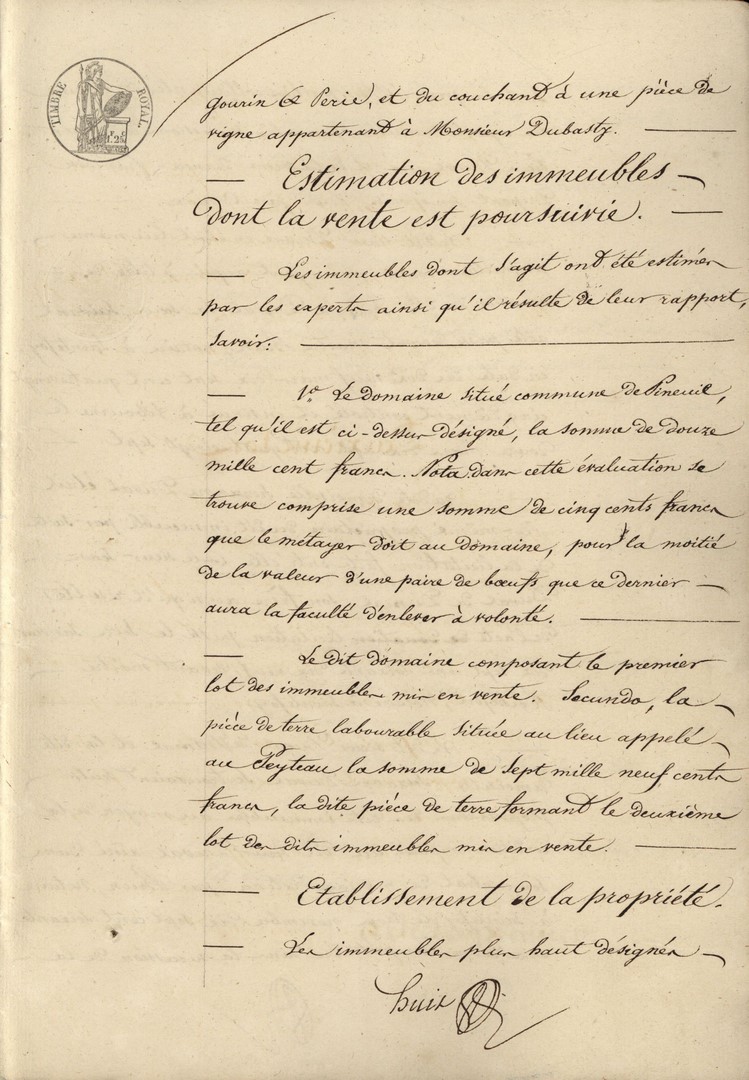 TIMBRE ROYAL
gourin & Perié, et du couchant à une pièce de
vigne appartenant à Monsieur Dubasty.
Estimation des immeubles
dont la vente est poursuivie.
Les immeubles dont s'agit ont été estimés
par les experts ainsi qu'il résulte de leur rapport,
savoir:
1o. Le domaine situé commune de Pineuil,
tel qu'il est ci-dessus désigné, la somme de douze
mille cent francs. Nota dans cette évaluation se
trouve comprise une somme de cinq cents francs
que le métayer doit au domaine, pour la moitié
de la valeur d'une paire de bœufs que ce dernier
aura la faculté d'enlever à volonté.
Le dit domaine composant le premier
lot des immeubles mis en vente. Secundo, la
pièce de terre labourable située au lieu appelé
au Peyteau la somme de sept mille neuf cents
francs, la dite pièce de terre formant le deuxième
lot des dits immeubles mis en vente.
Etablissement de la propriété.
Les immeubles plus haut désignés
huit